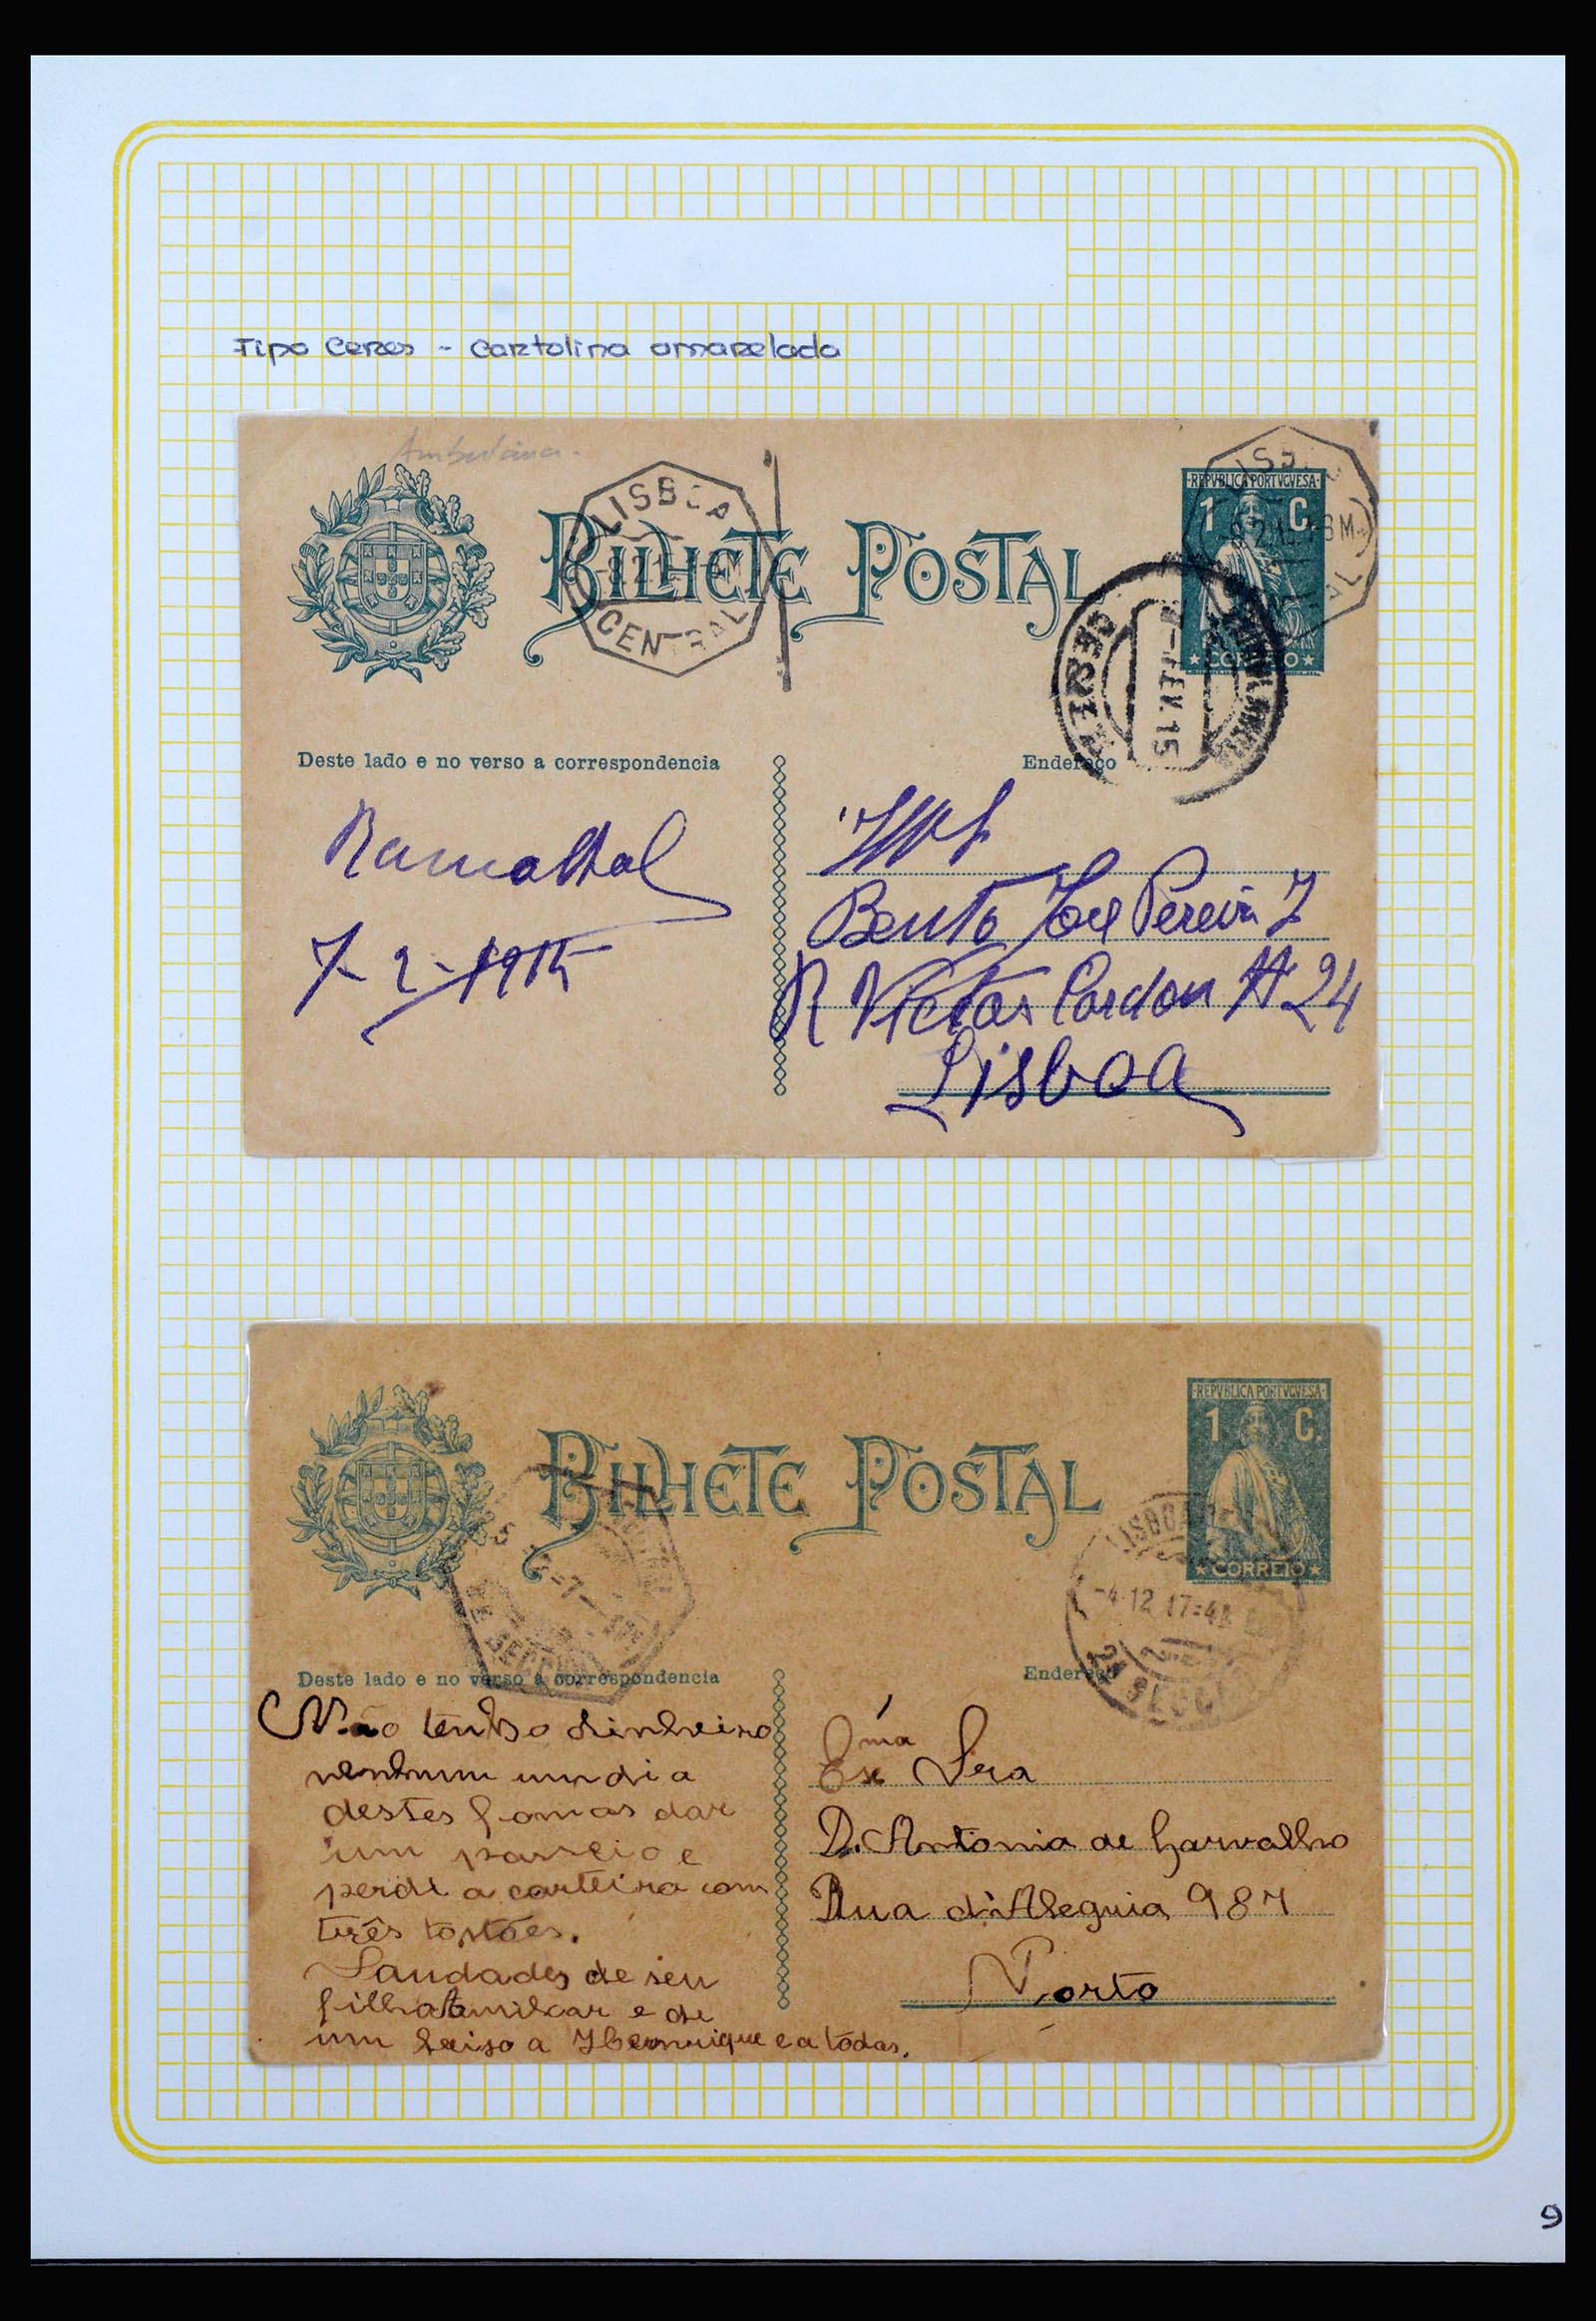 Tipo Ceres - cartolina amarelada
Ambulancia.
BILHETE POSTAL
LISBOA
CENTRAL
REPVBLICA PORTVGVESA
1 C.
CORREIO
7 FEV. 15
Deste lado e no verso a correspondencia
Endereço
Ramalhal
7-2-1915
Bento José Pereira J
R Victor Cordon 24
Lisboa
BILHETE POSTAL
REPVBLICA PORTVGVESA
1 C.
CORREIO
LISBOA
-4-12 17
2ª SECÇ
SECÇ
Deste lado e no verso a correspondencia
Endereço
Não tenho dinheiro
nenhum um dia
destes fomos dar
um passeio e
perdi a carteira com
três tostões.
Saudades de seu
filho Amilcar e de
um beijo a Henrique e a todas.
Exma Sra
D. Antonia de Carvalho
Rua d'Alegria 987
Porto
9